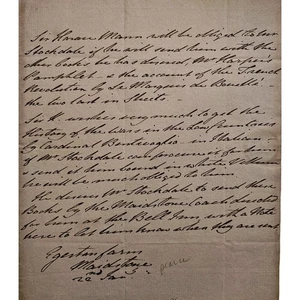 Sir Horace Mann will be obliged to Mr
Stockdale if he will send him with the
other books he has desired, Mr Harper's
Pamphlet - & the account of the French
Revolution by Le Marquis de Bouillé -
the two last in Sheets.
Sir H. wishes very much to get the
History of the Wars in the Low Countries
by Cardinal Bentivoglio - in Italian
if Mr Stockdale can procure it for him
& send it him bound in white Vellum
he will be much obliged to him
He desires Mr Stockdale to send these
Books by the Maidstone Coach directed
for him at the Bell Inn, with a Note
here to let him know when they are sent
Egerton farm
Maidstone
22nd Jany